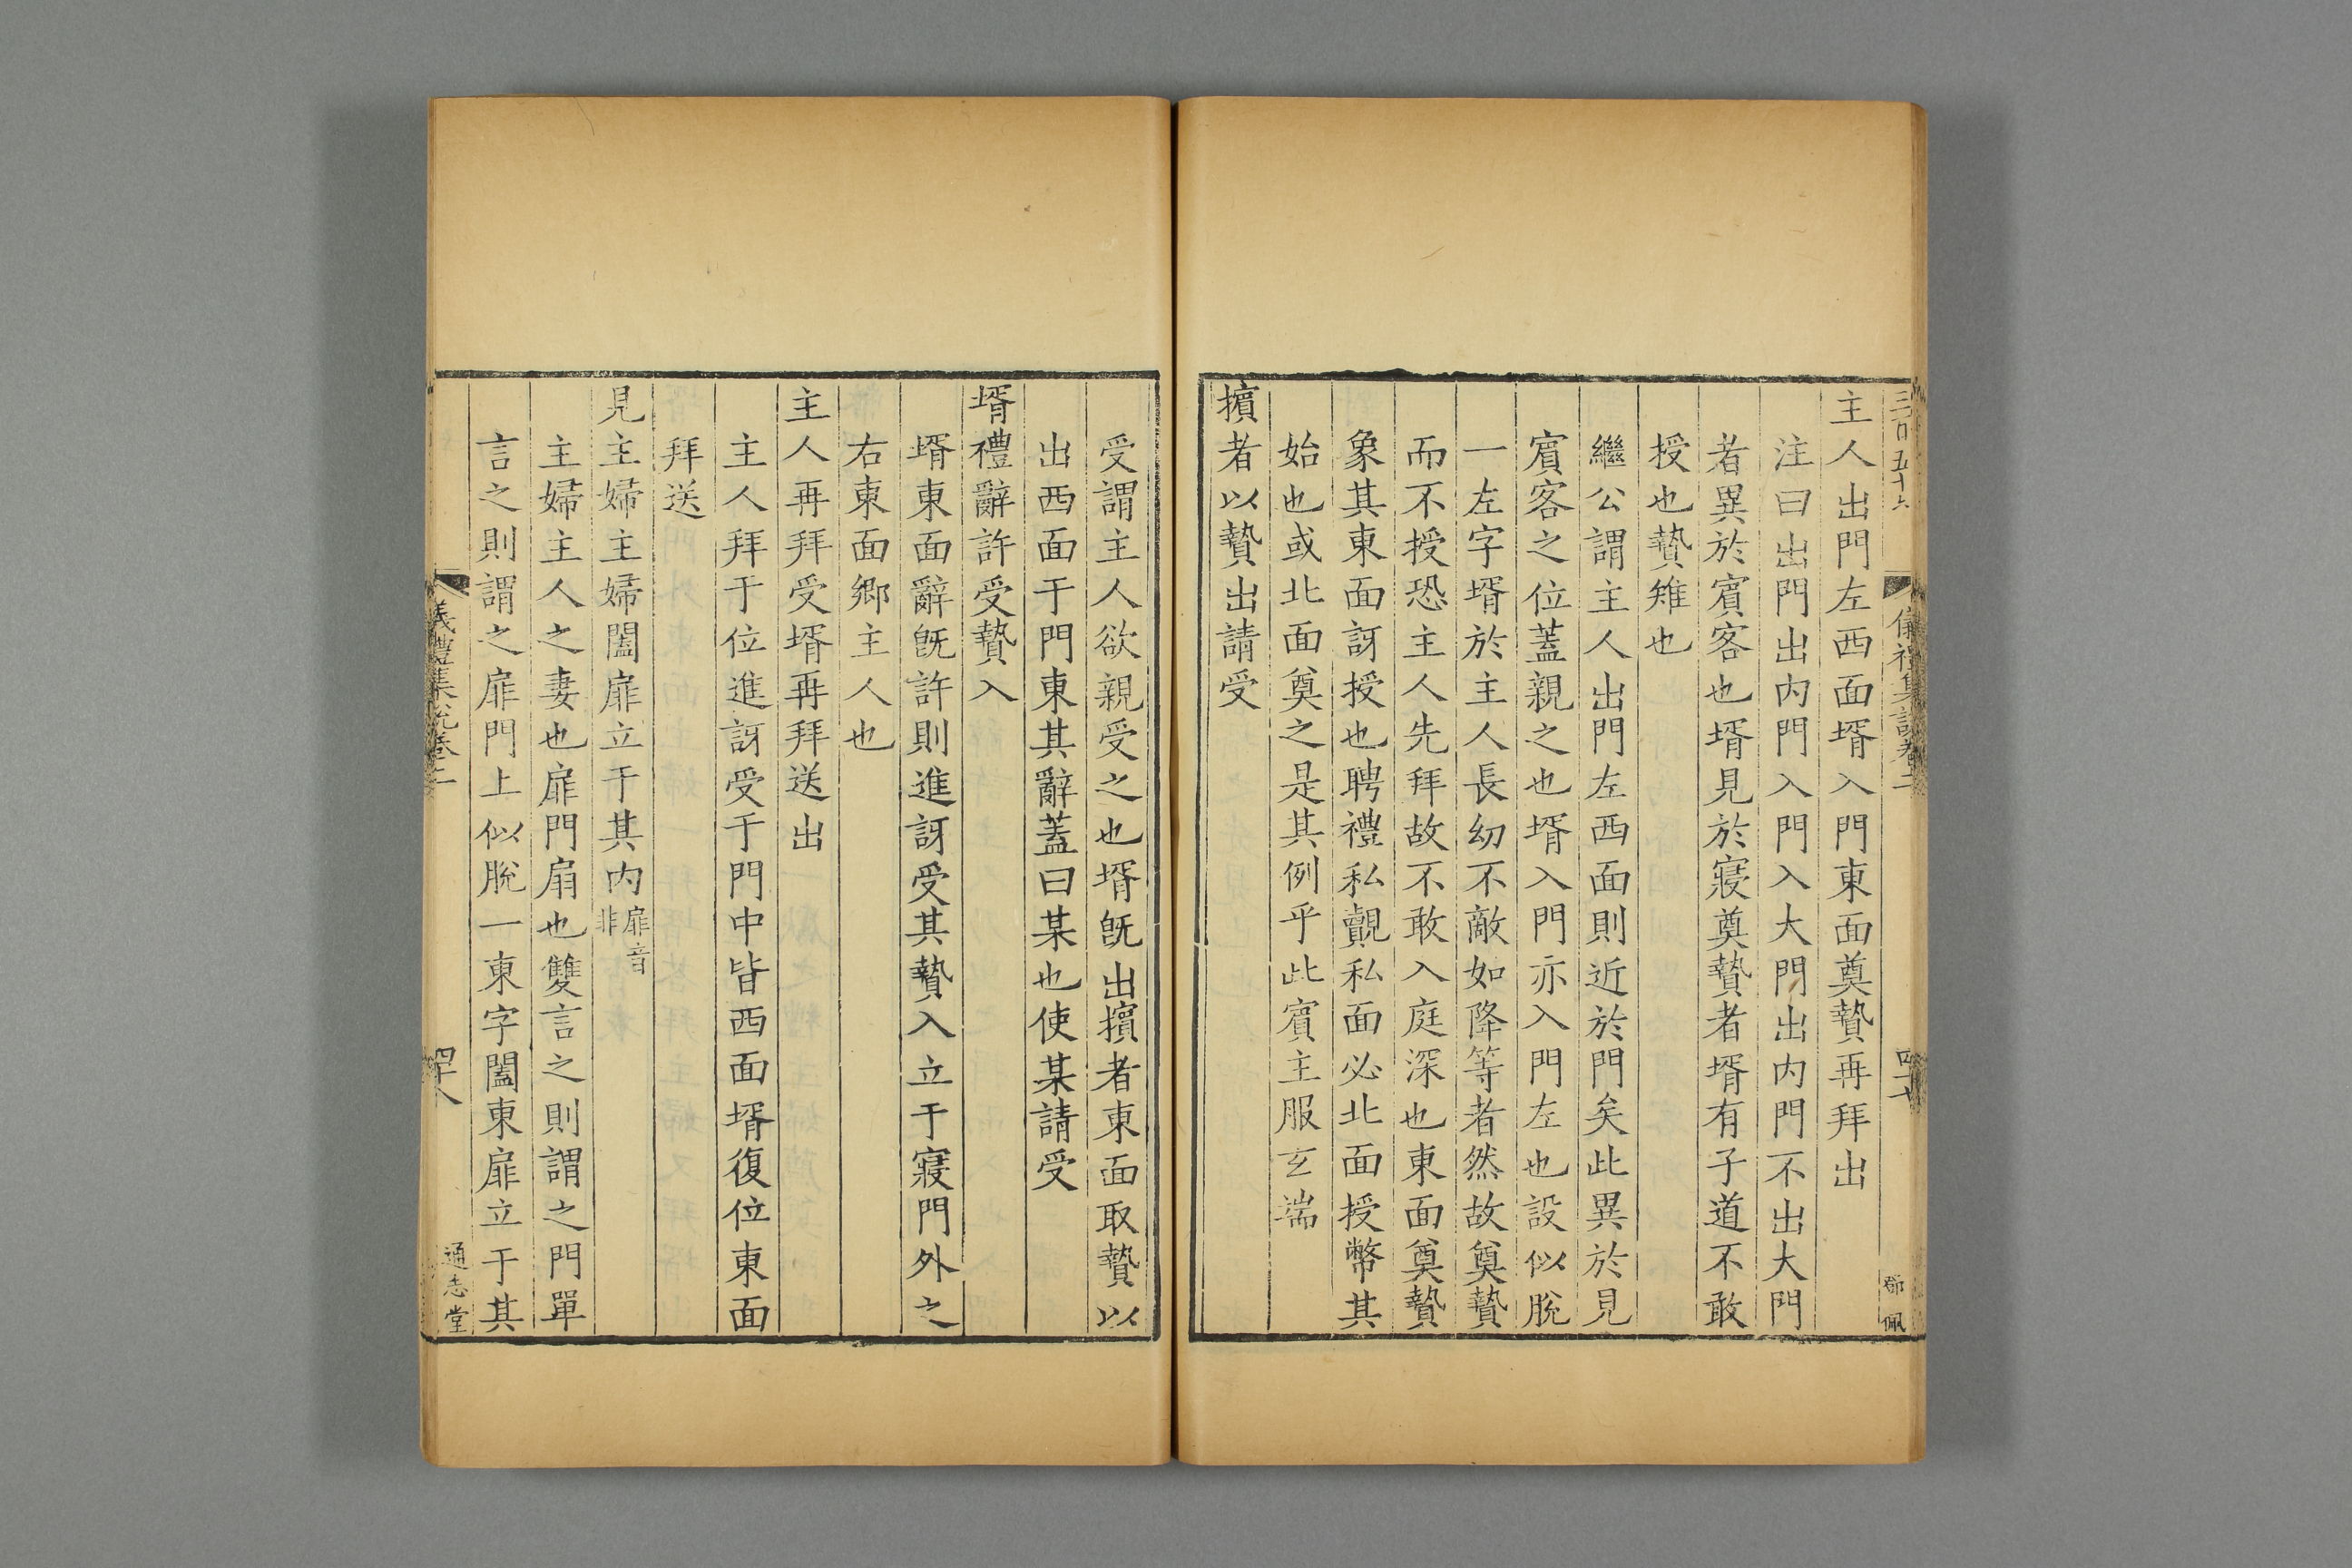 三百五十六
儀禮集說卷二
四十七
鄧佩
主人出門左西面壻入門東面奠贄再拜出
注曰出門出内門入門入大門出内門不出大門
者異於賓客也壻見於寢奠贄者壻有子道不敢
授也贄雉也
繼公謂主人出門左西面則近於門矣此異於見
賓客之位蓋親之也壻入門亦入門左也設似脫
一左字壻於主人長幼不敵如降等者然故奠贄
而不授恐主人先拜故不敢入庭深也東面奠贄
象其東面訝授也聘禮私覿私面必北面授幣其
始也或北面奠之是其例乎此賓主服玄端
擯者以贄出請受
受謂主人欲親受之也壻旣出擯者東面取贄以
出西面于門東其辭蓋曰某也使某請受
壻禮辭許受贄入
壻東面辭旣許則進訝受其贄入立于寢門外之
右東面鄉主人也
主人再拜受壻再拜送出
主人拜于位進訝受于門中皆西面壻復位東面
拜送
見主婦主婦闔扉立于其内扉音非
主婦主人之妻也扉門扇也雙言之則謂之門單
言之則謂之扉門上似脫一東字闔東扉立于其
儀禮集說卷二
四十八
通志堂